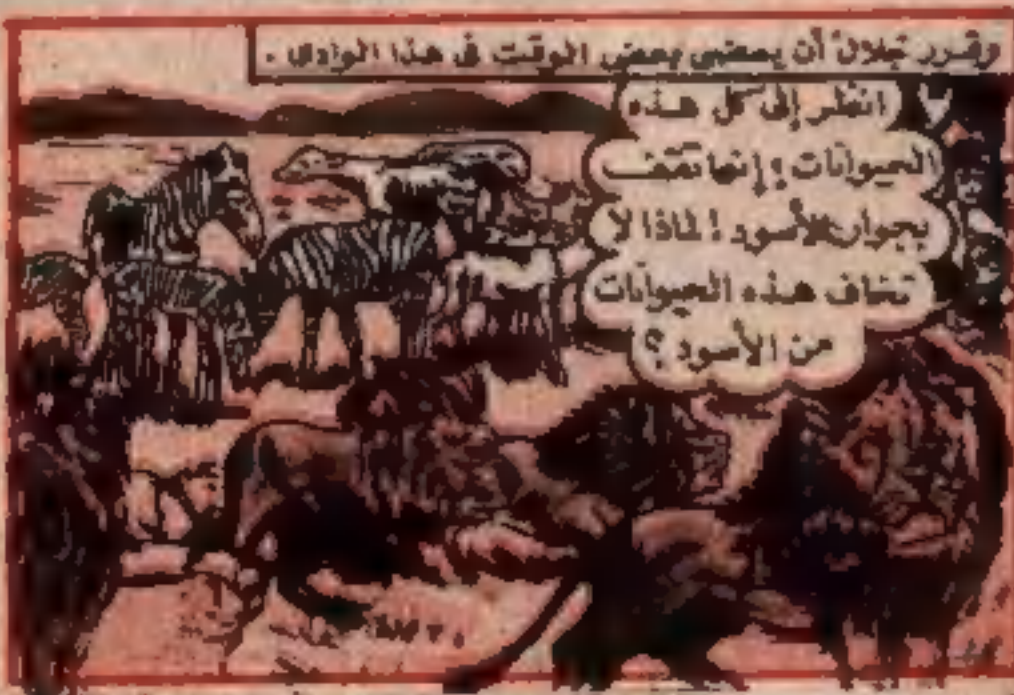 وقرر جلال أن يمضى بعض الوقت فى هذا الوادى .
انظر إلى كل هذه
الحيوانات ؛ إنها تقف
بجوار الأسود ! لماذا لا
تخاف هذه الحيوانات
من الأسود ؟